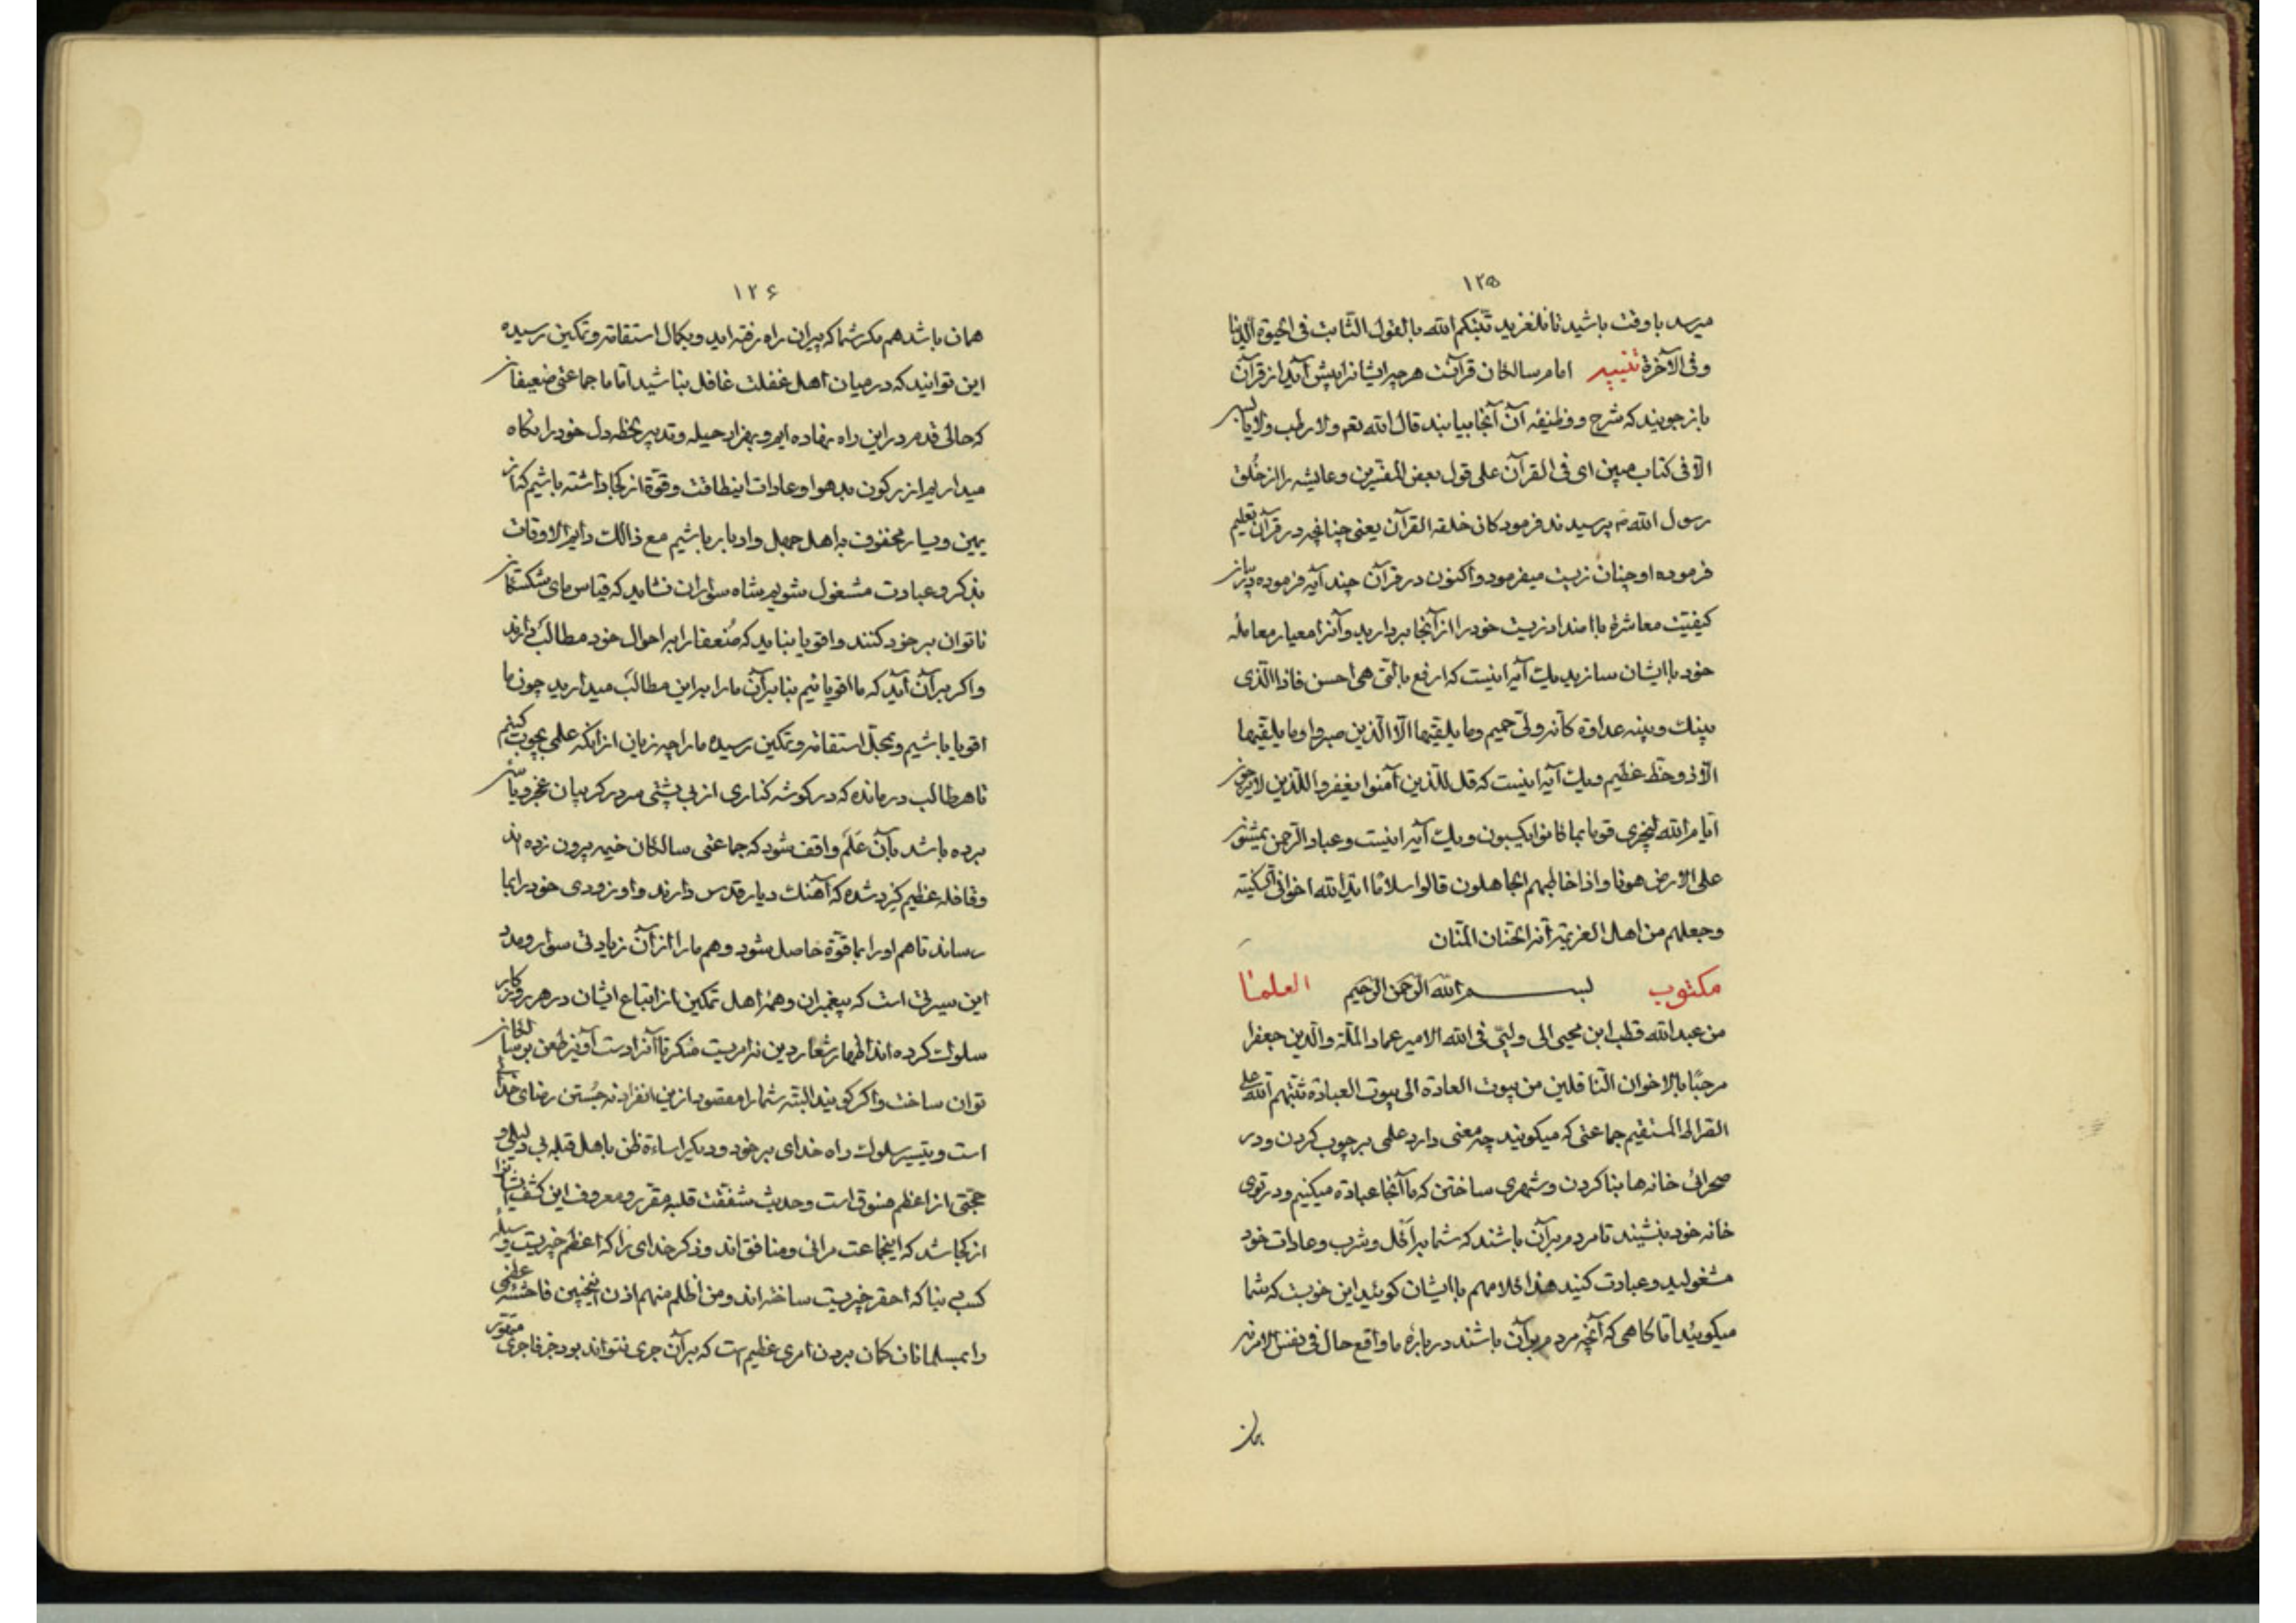 ۱۲۵
میرسد باوقت باشید تا نلغزید ثبتکم الله بالقول الثابت فی الحیوة الدنیا
وفی الآخرة تنبیه امام سالکان قرآنست هرچه ایشانرا پیش آید از قرآن
باز جویند که شرح و وظیفه آن آنجا بیابند قال الله تعم ولا رطب ولا یابس
الا فی کتاب مبین ای فی القرآن علی قول بعض المفسرین وعایشه را از خلق
رسول الله پرسیدند فرمود کان خلقه القرآن یعنی چنانچه در قرآن تعلیم
فرموده او چنان زیست میفرمود واکنون در قرآن چند آیه فرموده
کیفیت معاشرة با اضداد زیست خود را از آنجا بردارید وآنرا معیار معامله
خود با ایشان سازید یک آیه اینست که ادفع بالتی هی احسن فاذا الذی
بینك وبینه عداوة کانه ولی حمیم وما یلقیها الا الذین صبروا وما یلقیها
الا ذو حظ عظیم ویک آیه اینست که قل للذین آمنوا یغفروا للذین لا یرجون
ایام الله لیجزی قوما بما کانوا یکسبون ویک آیه اینست وعباد الرحمن یمشون
علی الارض هونا واذا خاطبهم الجاهلون قالوا سلاما اید الله اخوانی بالسکینة
وجعلهم من اهل العزیمة انه الحنان المنان
مکتوب بسم الله الرحمن الرحیم العلمنا
من عبدالله قطب ابن محیی الی ولیی فی الله الامیر عماد الملة والدین جعفرا
مرحبا بالاخوان الناقلین من بیوت العادة الی بیوت العبادة ثبتهم الله علی
الصراط المستقیم جماعتی که میگویند چه معنی دارد علمی بر چوب کردن ودر
صحرائی خانه ها بنا کردن وشهری ساختن که ما آنجا عبادة میکنیم ودر توی
خانه خود بنشیند تا مردم بر آن باشند که شما بر اکل وشرب وعادات خود
مشغولید وعبادت کنید هذا کلامهم با ایشان کوئید این خوبست که شما
میکوئید اما کاهی که آنچه مردم بر آن باشند در باره ما واقع حال فی نفس الامر نه
همان
۱۲۶
همان باشد هم مکر شما که پیران راه رفته اید وبکمال استقامة وتمکین رسیده
این توانید که در میان اهل غفلت غافل بناشید اما ما جماعتی ضعیفان
که حالی قدم در این راه نهاده ایم وبهزار حیله وتدبیر لحظه دل خود را نکاه
میداریم از رکون بدهوا وعادات اینطاقت وقوة از کجا داشته باشیم که از
یمین ویسار محفوف به اهل جهل وادبار باشیم مع ذالك دایم الاوقات
بذکر وعبادت مشغول شویم شاه سواران نشاید که قیاس مای شکستکان
ناتوان بر خود کنند واقویا بناید که ضعفا را بر احوال خود مطالب دارند
واکر بر آن آید که ما اقویائیم بنا بر آن ما را بر این مطالب میدارید چون ما
اقویا باشیم وبحد استقامة وتمکین رسیده ما را چه زیان از آنکه علمی بچوب کنیم
تا هر طالب درمانده که در کوشه کناری از بی پشتی سر در کریبان عجز ویاس
برده باشد بآن علم واقف شود که جماعتی سالکان خیمه بیرون زده اند
وقافله عظیم کرد شده که آهنك دیار قدس دارند واو بزودی خود را بما
رساند تا هم او را بما قوة حاصل شود وهم ما را از آن زیادتی سوار ومدد
این سیرتی است که پیغمبران وهمه اهل تمکین از اتباع ایشان در هر روزکار
سلوك کرده اند اظهار شعار دین نه امریست منکر تا آنرا دست آویز طعن بر سالکان
توان ساخت واکر کویند البته شما را مقصود از من انفراد نه جستن رضای خدا
است وتیسیر سلوك راه خدای بر خود ودیکر اساءة ظن باهل قبله بی دلیلی و
حجتی از اعظم فسوق است وحدیث شققت قلبه مقرر ومعروف این کشف شما را
از کجا شد که اینجماعت مرائی ومنافق اند وذکر خدای را که اعظم خیریست وسیله
کسب دنیا که احقر چیزیست ساخته اند ومن اظلم منهم اذن اینچنین فاحشه عظمی
را بمسلمانان کمان بردن امری عظیم است که بر آن جری نتواند بود جز فاجری متهور